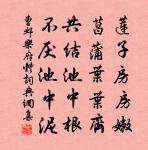 蓮子房房嫩
菖蒲葉葉齊
共結池中根
不厭池中泥
曹鄴樂府詞典網集